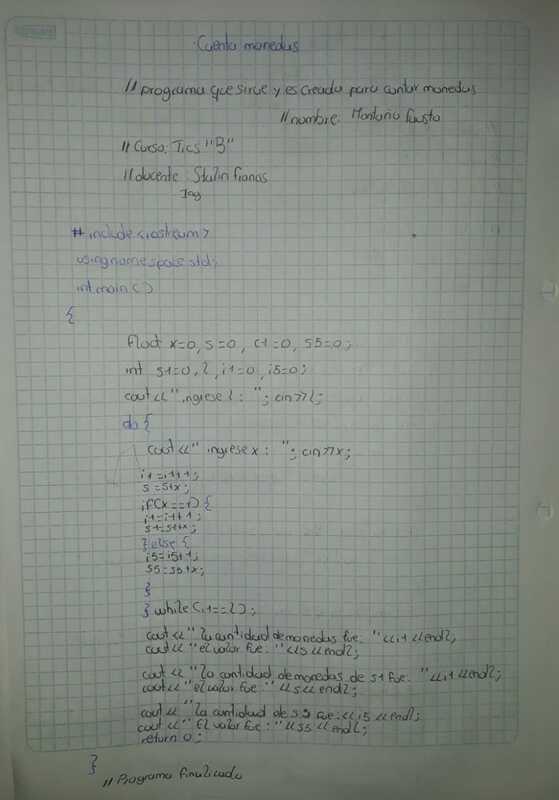 Cuenta monedas
// programa que sirve y es creado para contar monedas
// nombre: Montaño Fausto
// Curso: Tics "B"
// docente: Stalin
Ing
# include <iostream>
using namespace std;
int main ( )
{
float x=0, s=0, c1=0, s5=0;
int s1=0, l, i1=0, i5=0;
cout << " ingrese l : "; cin >> l;
do {
cout << " ingrese x : "; cin >> x;
i1=i1+1;
s=s+x;
if(x==1) {
i1=i1+1;
s1=s1+x;
} else {
i5=i5+1;
s5=s5+x;
}
} while (i1==l);
cout << " la cantidad de monedas fue: " << i1 << endl;
cout << " el valor fue: " << s << endl;
cout << " la cantidad de monedas de s1 fue: " << i1 << endl;
cout << " el valor fue: " << s << endl;
cout << " la cantidad de s5 fue: << i5 << endl;
cout << " El valor fue: " << s5 << endl;
return 0;
}
// Programa finalizado